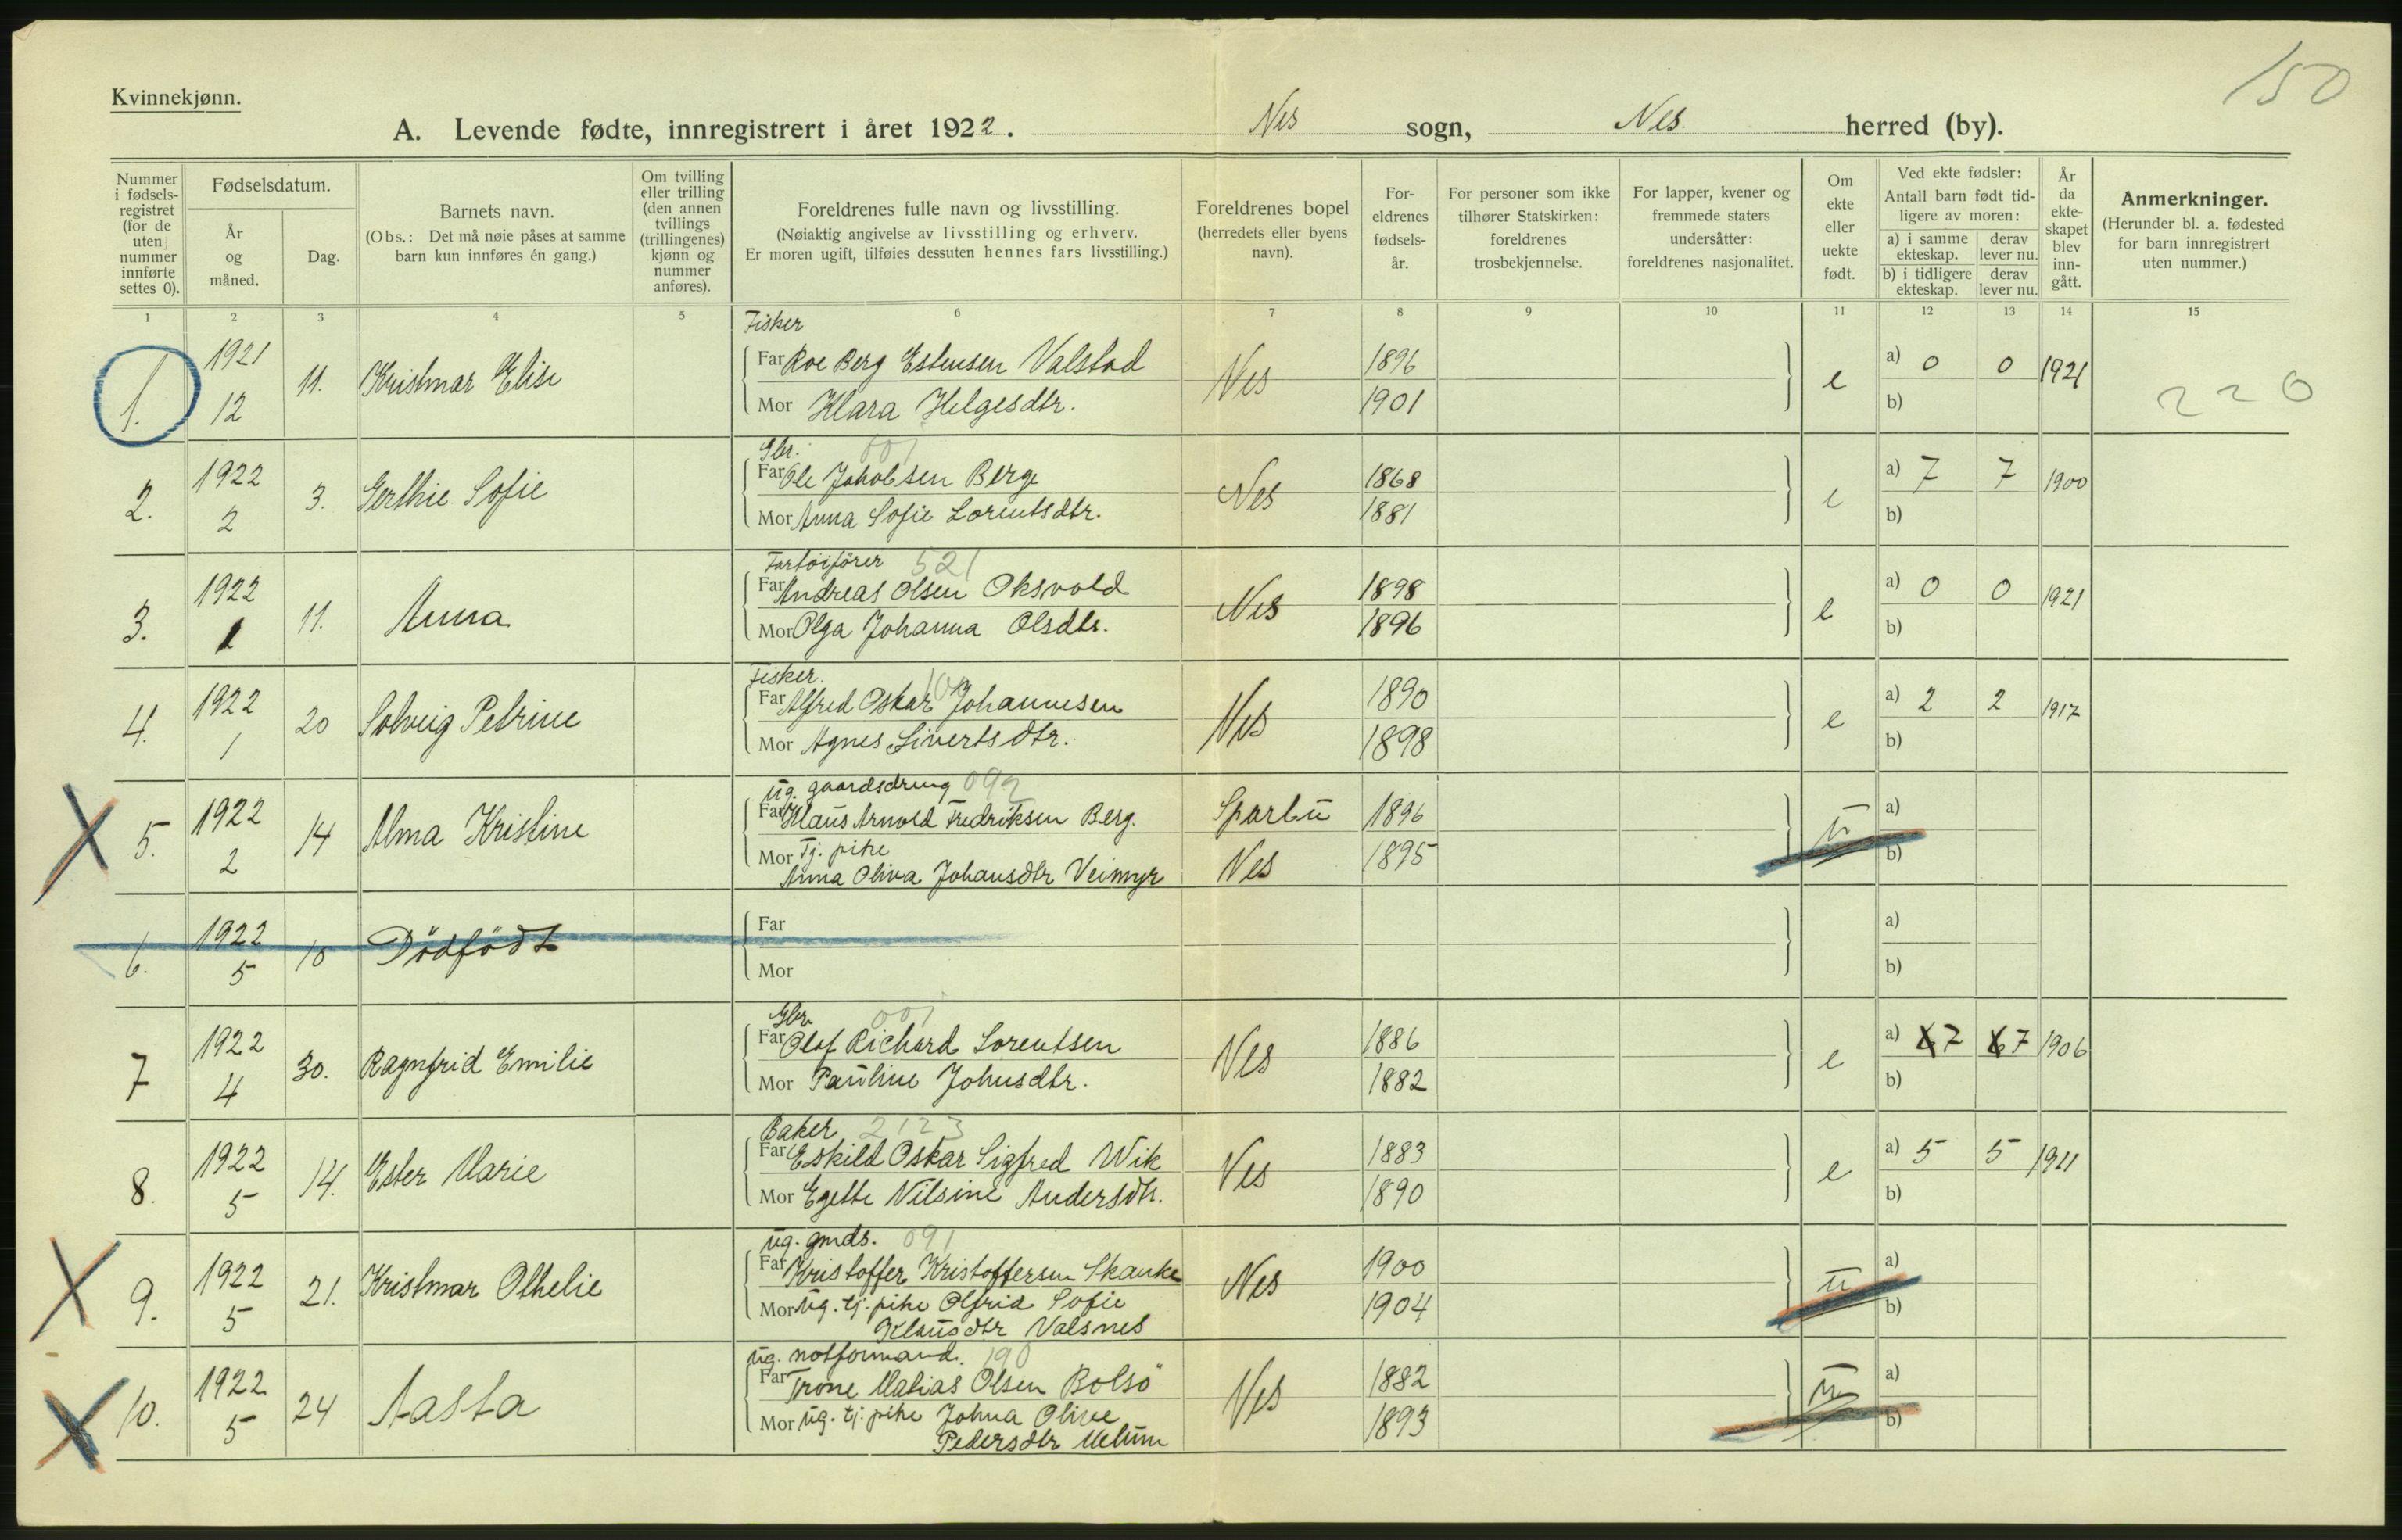 150
Kvinnekjønn.
A. Levende fødte, innregistrert i året 1922. Nes sogn, Nes herred (by).
Nummer i fødsels-registret (for de uten nummer innførte settes 0).
Fødselsdatum.
År og måned.
Dag.
Barnets navn.
(Obs.: Det må nøie påses at samme barn kun innføres én gang.)
Om tvilling eller trilling (den annen tvillings (trillingenes) kjønn og nummer anføres).
Foreldrenes fulle navn og livsstilling.
(Nøiaktig angivelse av livsstilling og erhverv.
Er moren ugift, tilføies dessuten hennes fars livsstilling.)
Foreldrenes bopel (herredets eller byens navn).
For-eldrenes fødsels-år.
For personer som ikke tilhører Statskirken: foreldrenes trosbekjennelse.
For lapper, kvener og fremmede staters undersåtter: foreldrenes nasjonalitet.
Om ekte eller uekte født.
Ved ekte fødsler: Antall barn født tid-ligere av moren:
a) i samme ekteskap.
derav lever nu.
b) i tidligere ekteskap.
derav lever nu.
År da ekte-skapet blev inn-gått.
Anmerkninger.
(Herunder bl. a. fødested for barn innregistrert uten nummer.)
1 2 3 4 5 6 7 8 9 10 11 12 13 14 15
Fisker
1. 1921 12 11. Kristmar Elise
Far Roe Berg Estensen Valstad Nes 1896 e a) 0 0 1921
Mor Klara Helgesdtr. 1901 b)
220
Gbr. 001
2. 1922 2 3. Gerthie Sofie
Far Ole Jakobsen Berge Nes 1868 e a) 7 7 1900
Mor Anna Sofie Lorentsdtr. 1881 b)
Fartöiförer 521
3. 1922 1 11. Anna
Far Andreas Olsen Oksvold Nes 1898 e a) 0 0 1921
Mor Olga Johanna Olsdtr. 1896 b)
Fisker.
4. 1922 1 20 Solveig Petrine
Far Alfred Oskar Johannesen Nes 1890 e a) 2 2 1917
Mor Agnes Sivertsdtr. 1898 b)
ug. gaardsdreng 092
5. 1922 2 14 Alma Kristine
Far Klaus Arnold Fredriksen Berg. Sparbu 1896 u a)
Mor Tj. pike Nes 1895 b)
Anna Oliva Johansdtr Veimyr
6. 1922 5 10 Dödfödt
Far a)
Mor b)
Gbr 001
7 1922 4 30. Ragnfrid Emilie
Far Olaf Richard Lorentsen Nes 1886 e a) 7 7 1906
Mor Pauline Johnsdtr. 1882 b)
Baker 2123
8. 1922 5 14. Ester Marie
Far Eskild Oskar Sigfred Wik Nes 1883 e a) 5 5 1911
Mor Egette Nilsine Andersdtr. 1890 b)
ug. gmds. 091
9. 1922 5 21. Kristmar Othelie
Far Kristoffer Kristoffersen Skanke Nes 1900 u a)
Mor ug. tj. pike Olfrid Sofie 1904 b)
Klausdtr Valsnes
ug. notformand. 190
10. 1922 5 24 Aasta
Far Trone Matias Olsen Bolsö Nes 1882 u a)
Mor ug. tj. pike Johna Olive 1893 b)
Pedersdtr Melum